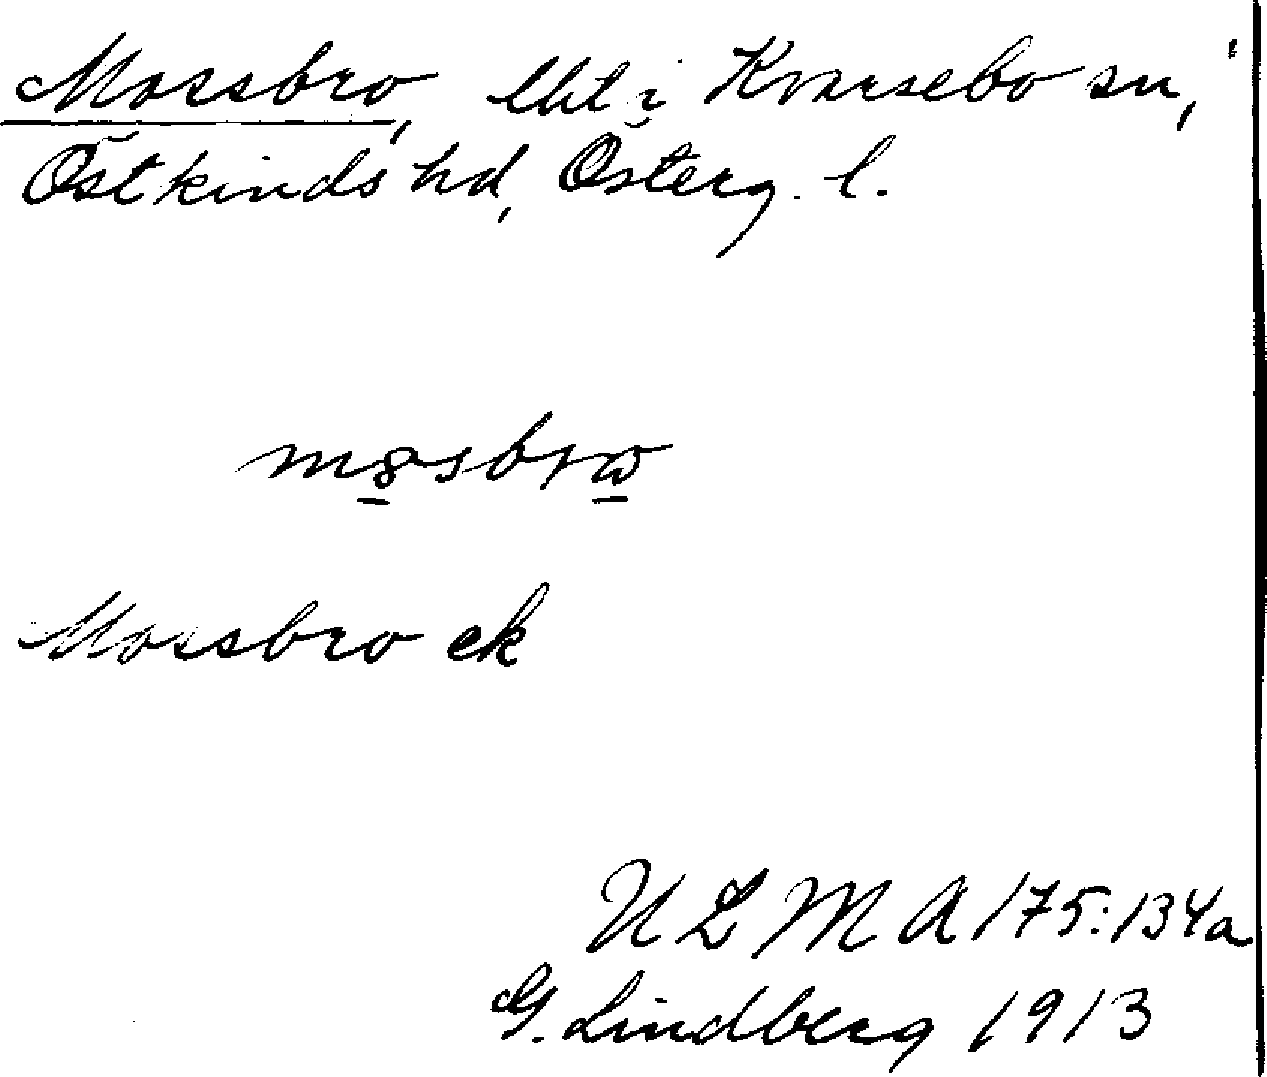 Mossbro, i Kvarsebo sn,
Östkinds hd, Österg. l.
Mossbro ek
ULMA 175:134a
G. Lindberg 1913